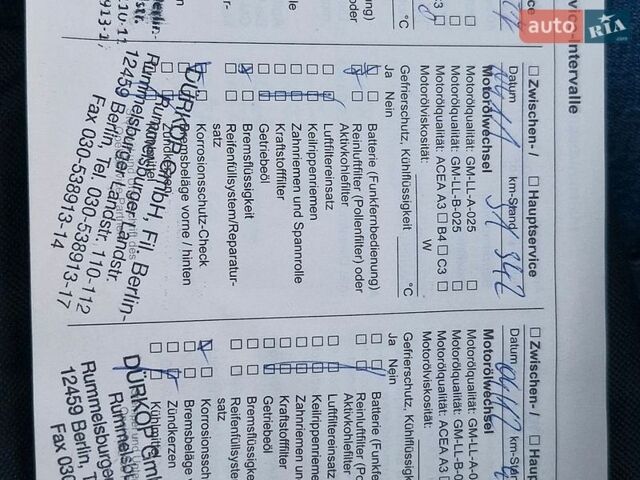 auto RIA.com
vice-Intervalle
Service
°C
Zwischen- / Hauptservice
Datum km-Stand
Motorölwechsel
Motorölqualität: GM-LL-A-025
Motorölqualität: GM-LL-B-025
Motorölqualität: ACEA A3 B4 C3
Motorölviskosität: W
Gefrierschutz, Kühlflüssigkeit °C
Ja Nein
Batterie (Funkfernbedienung)
Reinluftfilter (Pollenfilter) oder
Aktivkohlefilter
Luftfiltereinsatz
Keilrippenriemen
Zahnriemen und Spannrolle
Kraftstofffilter
Getriebeöl
Bremsflüssigkeit
Reifenfüllsystem/Reparatur-
satz
Korrosionsschutz-Check
Bremsbeläge vorne / hinten
Zündkerzen
DÜRKOP GmbH, Fil. Berlin-
Rummelsburger Landstr.
Rummelsburger Landstr. 110-112
12459 Berlin, Tel. 030-538913-14
Fax 030-538913-17
Zwischen- / Haup
Datum km-Stan
Motorölwechsel
Motorölqualität: GM-LL-A-0
Motorölqualität: GM-LL-B-0
Motorölqualität: ACEA A3
Motorölviskosität:
Gefrierschutz, Kühlflüssigke
Ja Nein
Batterie (Funkfer
Reinluftfilter (P
Aktivkohlefilter
Luftfiltereinsatz
Keilrippenrieme
Zahnriemen un
Kraftstofffilter
Getriebeöl
Bremsflüssigke
Reifenfüllsystem
satz
Korrosionssch
Bremsbeläge v
Zündkerzen
DÜRKOP Gm
Rummelsb
Rummelsburge
12459 Berlin, T
Fax 030